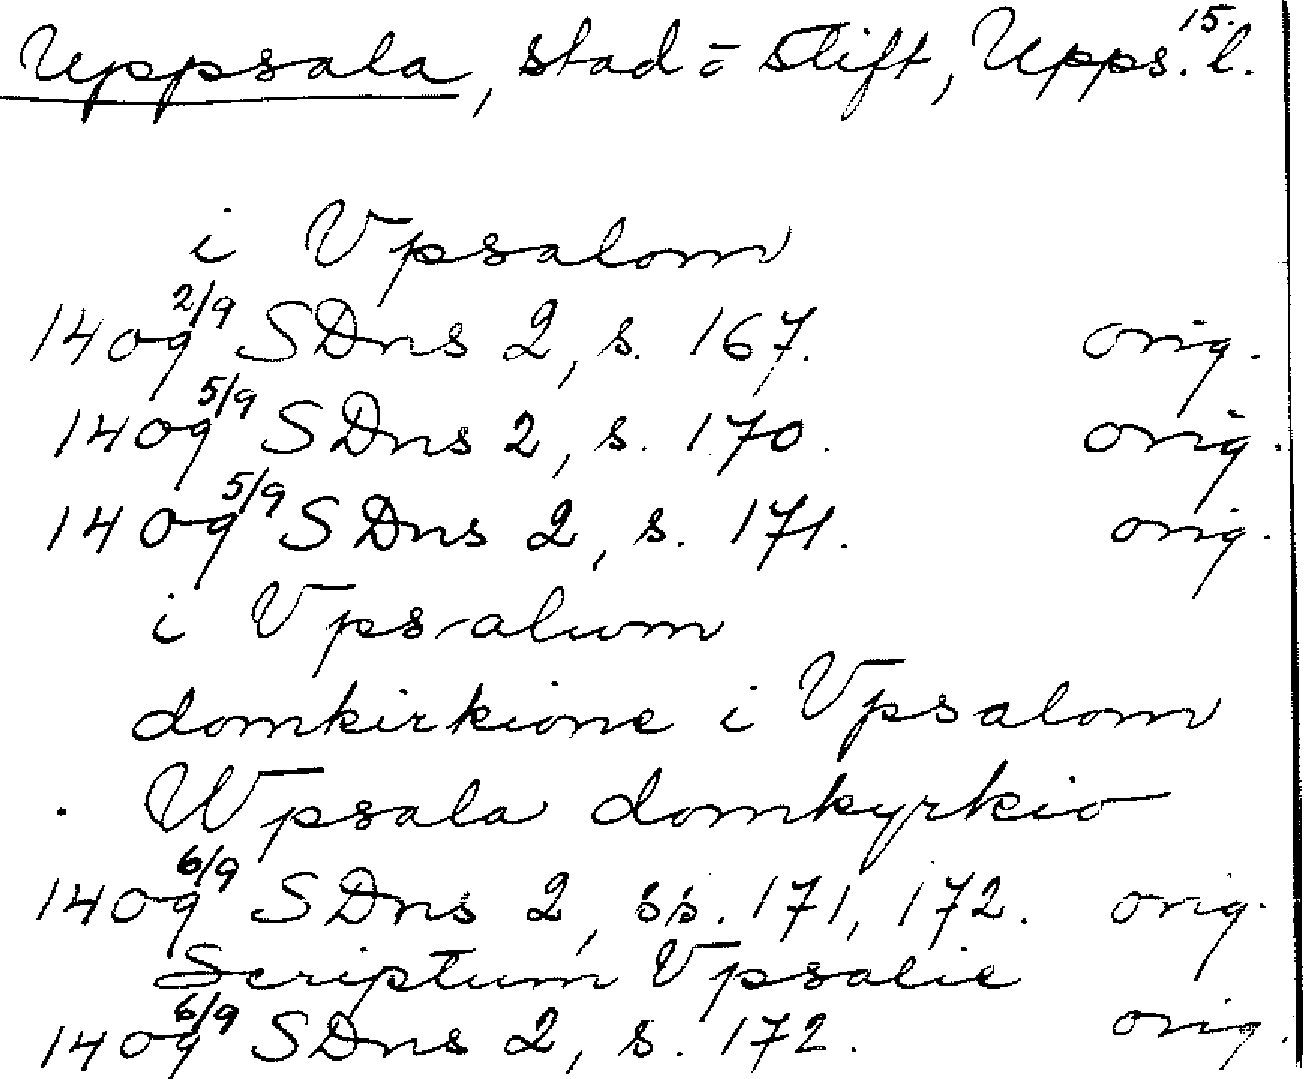 Uppsala, stad o stift, Upps. l. 15.
i Vpsalom
1409 2/9 SDns 2, s. 167. orig.
1409 5/9 SDns 2, s. 170. orig.
1409 5/9 SDns 2, s. 171. orig.
i Vpsalum
domkirkione i Vpsalom
Wpsala domkyrkio
1409 6/9 SDns 2, ss. 171, 172. orig.
Scriptum Vpsalie
1409 6/9 SDns 2, s. 172. orig.